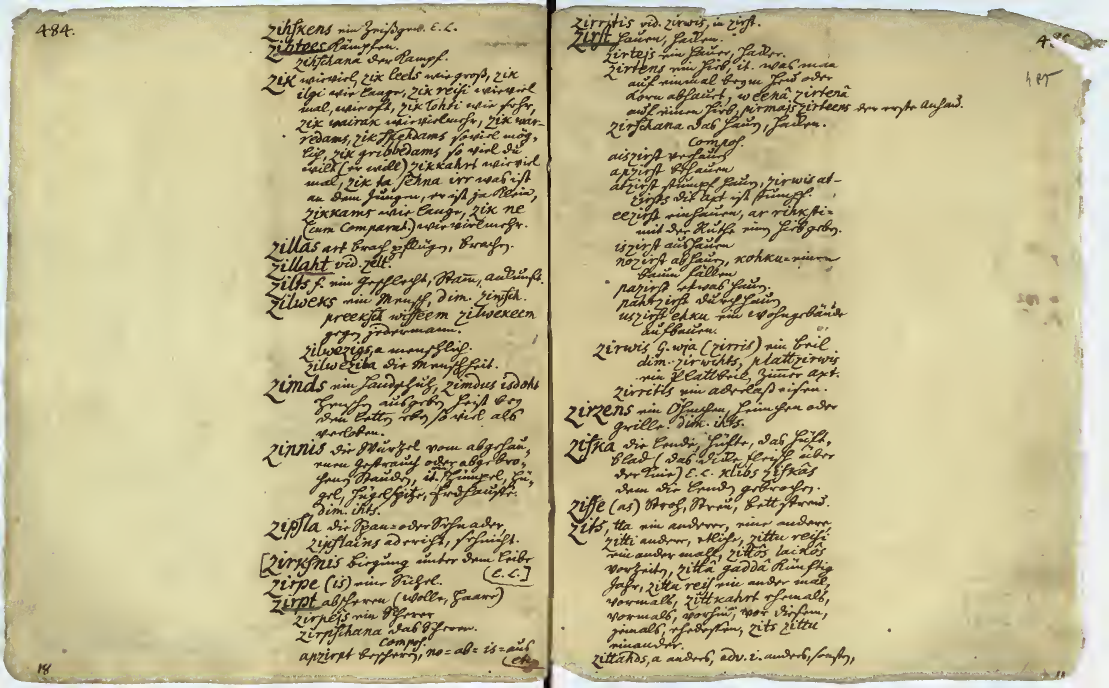 484.
zihskens ein Zeisgen. E. L.
zihtees Kämpfen.
zihschana der Kampf.
zik wieviel, zik leels wie groß, zik
ilgi wie lange, zik reisi wieviel
mal, wie oft, zik lohti wie sehr,
zik wairak wievielmehr, zik war-
redams, zik spehdams soviel mög-
lich, zik gribbedams so viel du
wilt (er will) zikkahrt wieviel
mal, zik ta sehna irr was ist
an dem Jungen, er ist ja klein,
zikkams wie lange, zik ne
(cum Comparat.) wievielmehr.
zillas art brach pflügen, brachen.
zillaht vid. zelt.
zilts f. ein Geschlecht, Stam, ankunft.
zilweks ein Mensch, dim. zinsch.
preeksch wisseem zilwekeem
gegen jedermann.
zilwezigs, a menschlich.
zilweziba die Menschheit.
zimds ein Handschuh, zimdus isdoht
Henschen ausgeben heist bey
den Letten eben so viel als
verloben.
zinnis die Wurzel vom abgehau-
enen Gestrauch oder abgebro-
chenen Stauden, it. Hümpel, Hü-
gel, Hügelspitze, Erdhaufe.
dim. ihts.
zipsla die Span- oder Sehn ader,
zipslains adericht, sehnicht.
[zirksnis Biegung unter dem Leibe
(E. L.)]
zirpe (is) eine Sichel.
zirpt abscheren (wolle, Haare)
zirpejs ein Scherer
zirpschana das Scheren.
Compos.
apzirpt bescheren, no= at= is= aus
etc.
18
zirritis vid. zirwis, in zirst.
zirst hauen, hacken.
zirtejs ein Hauer, Hacker.
zirtens ein Hieb, it. was man
auf einmal beym Heu oder
Korn abhaut, weenâ zirtenâ
auf einen Hieb, pirmais zirteens der erste Anhau.
zirschana das Hauen, Hacken.
Compos.
aiszirst verhauen
apzirst behauen
atzirst stumpf hauen, zirwis at-
zirsts die Axt ist stumpf.
eezirst einhauen, ar rihksti=
mit der Ruthe einen Hieb geben.
iszirst aushauen
nozirst abhauen, kohku= einen
baum fällen
pazirst etwas hauen.
pahrzirst durchhauen
uszirst ehku ein wohngebäude
aufbauen.
zirwis G. wja (zirris) ein Beil
dim. zirwihts, plattzirwis
ein Plattbeil, Zimmer axt.
zirritis ein aderlaseisen.
zirzens ein Öhmchen, Heimchen oder
grille. dim. ihts.
ziska die Lende, Hüfte, das Hüft-
blad (das dicke fleisch über
der Knie) E. L. klibs ziskâs
dem die Lenden gebrochen.
zisse (as) Stroh, Streu, bettstreu.
zits tta ein anderer, eine andere,
zitti andere, etliche, zittu reisi
ein ander mal, zittôs laikôs
vorzeiten, zittâ gaddâ künftig
Jahr, zitta reis ein ander mal,
vormals, zittkahrt ehemals,
vormals, vorhin, vor diesem,
jemals, ehedessen, zits zittu
einander.
zittahds, a anders, adv. i. anders, sonsten,
485